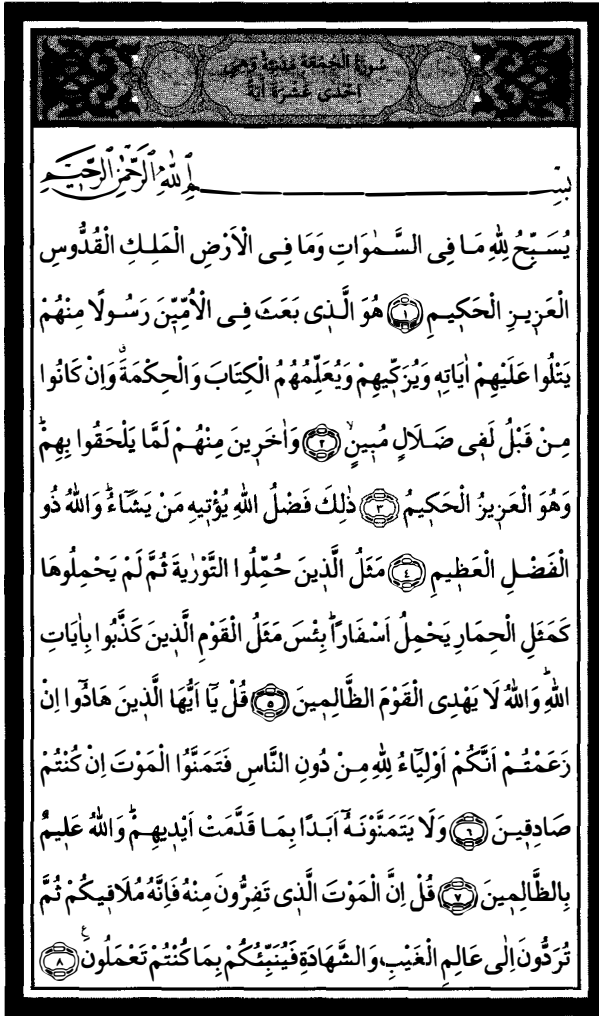 سُورَةُ الْجُمُعَةِ مَدَنِيَّةٌ وَهِيَ
اِحْدٰى عَشْرَةَ اٰيَةً
بِسْمِ اللّٰهِ الرَّحْمٰنِ الرَّحِيمِ
يُسَبِّحُ لِلّٰهِ مَا فِى السَّمٰوَاتِ وَمَا فِى الْاَرْضِ الْمَلِكِ الْقُدُّوسِ
الْعَزِيزِ الْحَكِيمِ ﴿١﴾ هُوَ الَّذٖى بَعَثَ فِى الْاُمِّيّٖنَ رَسُولًا مِنْهُمْ
يَتْلُوا عَلَيْهِمْ اٰيَاتِهٖ وَيُزَكّٖيهِمْ وَيُعَلِّمُهُمُ الْكِتَابَ وَالْحِكْمَةَۗ وَاِنْ كَانُوا
مِنْ قَبْلُ لَفٖى ضَلَالٍ مُبٖينٍۙ ﴿٢﴾ وَاٰخَرٖينَ مِنْهُمْ لَمَّا يَلْحَقُوا بِهِمْۜ
وَهُوَ الْعَزٖيزُ الْحَكٖيمُ ﴿٣﴾ ذٰلِكَ فَضْلُ اللّٰهِ يُؤْتٖيهِ مَنْ يَشَٓاءُۜ وَاللّٰهُ ذُو
الْفَضْلِ الْعَظٖيمِ ﴿٤﴾ مَثَلُ الَّذٖينَ حُمِّلُوا التَّوْرٰيةَ ثُمَّ لَمْ يَحْمِلُوهَا
كَمَثَلِ الْحِمَارِ يَحْمِلُ اَسْفَارًاۜ بِئْسَ مَثَلُ الْقَوْمِ الَّذٖينَ كَذَّبُوا بِاٰيَاتِ
اللّٰهِۜ وَاللّٰهُ لَا يَهْدِى الْقَوْمَ الظَّالِمٖينَ ﴿٥﴾ قُلْ يَٓا اَيُّهَا الَّذٖينَ هَادُٓوا اِنْ
زَعَمْتُمْ اَنَّكُمْ اَوْلِيَٓاءُ لِلّٰهِ مِنْ دُونِ النَّاسِ فَتَمَنَّوُا الْمَوْتَ اِنْ كُنْتُمْ
صَادِقٖينَ ﴿٦﴾ وَلَا يَتَمَنَّوْنَهُٓ اَبَدًا بِمَا قَدَّمَتْ اَيْدٖيهِمْۜ وَاللّٰهُ عَلٖيمٌ
بِالظَّالِمٖينَ ﴿٧﴾ قُلْ اِنَّ الْمَوْتَ الَّذٖى تَفِرُّونَ مِنْهُ فَاِنَّهُ مُلَاقٖيكُمْ ثُمَّ
تُرَدُّونَ اِلٰى عَالِمِ الْغَيْبِ وَالشَّهَادَةِ فَيُنَبِّئُكُمْ بِمَا كُنْتُمْ تَعْمَلُونَ ع ﴿٨﴾